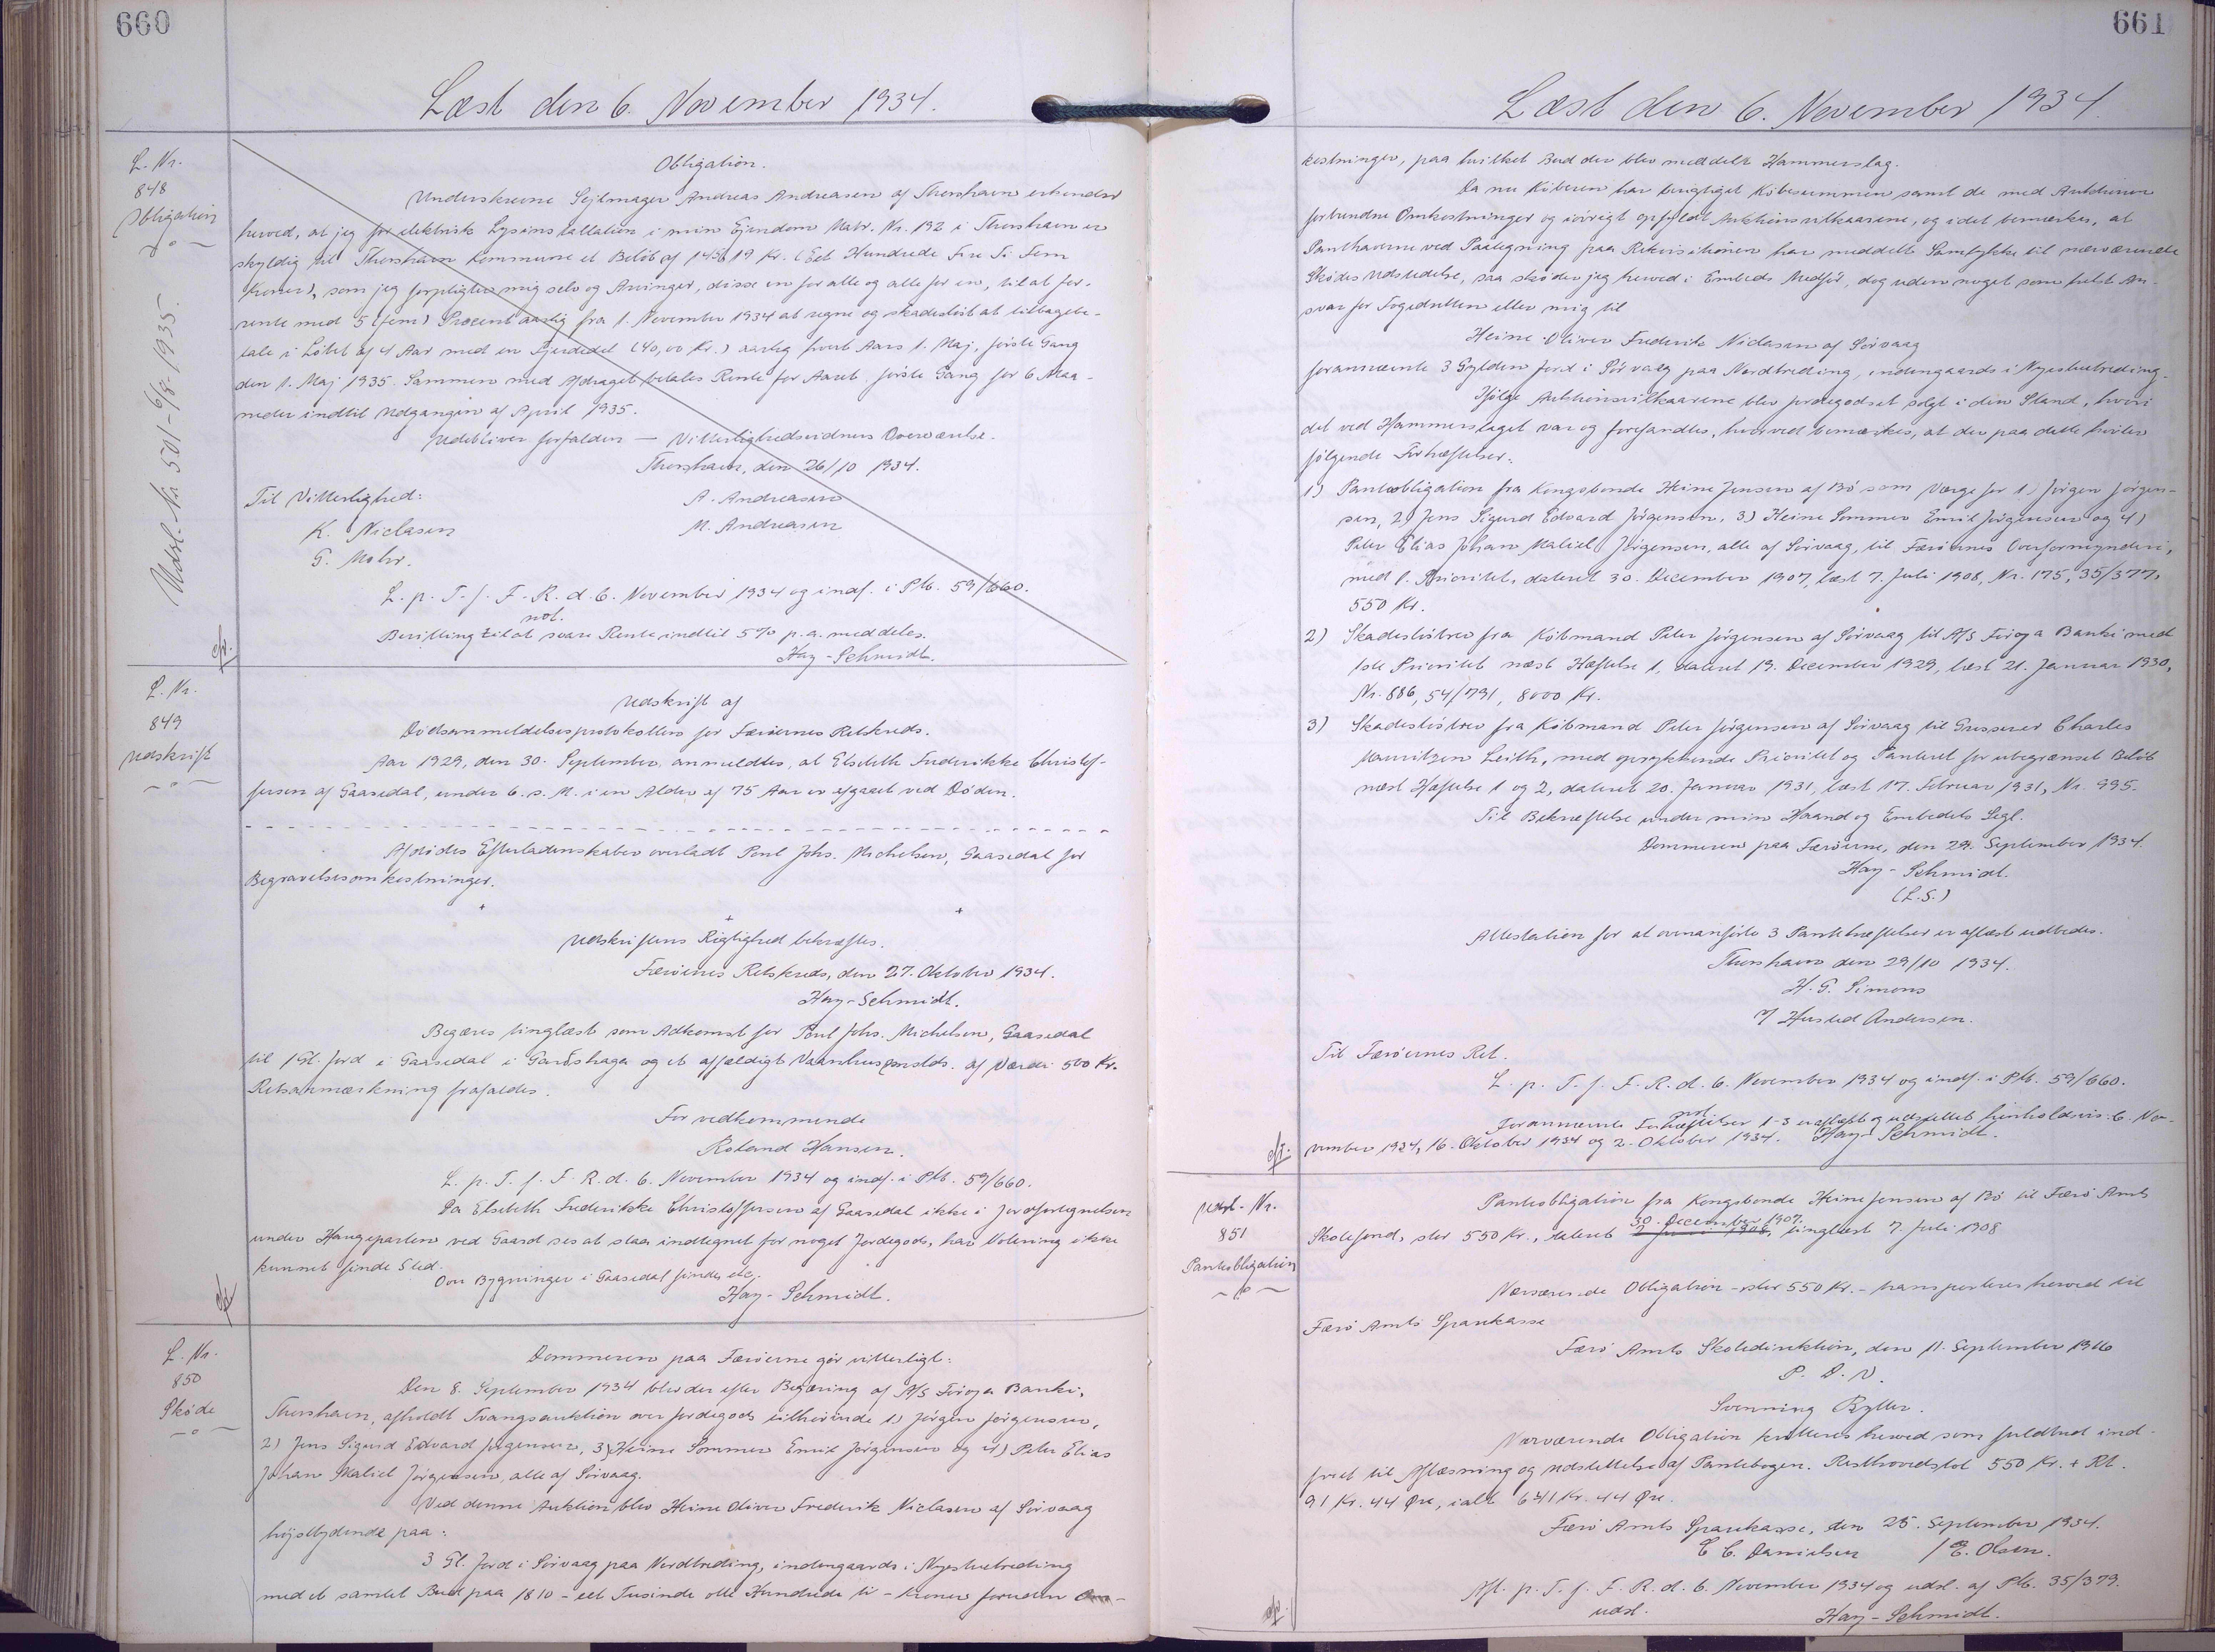 660
Læst den 6. November 1934.
L. Nr.
848
Obligation
Udsl. Nr. 501-6/8-1935.
Obligation.
Underskrevne Sejlmager Andreas Andreasen af Thorshavn erkender
herved, at jeg for elektrisk Lysinstallation i min Ejendom Matr. Nr. 192 i Thorshavn er
skyldig til Thorshavn Kommune et Beløb af Kr. (Eet Hundrede Fire Ti Fem
Kroner), som jeg forpligter mig selv og Arvinger, disse en for alle og alle for en, til at for-
rente med 5 (fem) Procent aarlig fra 1. November 1934 at regne og skadesløst at tilbagebe-
tale i Løbet af 4 Aar med en Fjerdedel (40,00 Kr.) aarlig hvert Aars 1. Maj, første Gang
den 1. Maj 1935. Sammen med Afdraget betales Rente for Aaret første Gang for 6 Maa-
neder indtil Udgangen af April 1935.
Udebliver forfalden — Vitterlighedsvidners Overværelse.
Thorshavn, den 26/10 1934.
Til Vitterlighed:
A. Andreasen
K. Niclasen
M. Andreasen
G. Mohr.
L. p. T. f. F. R. d. 6. November 1934 og indf. i Ptb. 59/660.
not.
Bevilling til at svare Rente indtil 5% p.a. meddeles.
Hay-Schmidt.
L. Nr.
849
Udskrift
Udskrift af
Dødsanmeldelsesprotokollen for Færøernes Retskreds.
Aar 1929, den 30. September, anmeldtes, at Elsebeth Frederikke Christof-
fersen af Gaasedal, under 6. s. M. i en Alder af 75 Aar er afgaaet ved Døden.
Afdødes Efterladenskaber overladt Poul Johs. Michelsen, Gaasedal for
Begravelsesomkostninger.
Udskriftens Rigtighed bekræftes.
Færøernes Retskreds, den 27. Oktober 1934.
Hay-Schmidt.
Begæres tinglæst som Adkomst for Poul Johs. Michelsen, Gaasedal
til 1 Gl. Jord i Gaasedal i Garðshaga og et affældigt Vaanhus smstds. af Værdi 500 Kr.
Retsanmærkning frafaldes.
For vedkommende
Roland Hansen.
L. p. T. f. F. R. d. 6. November 1934 og indf. i Ptb. 59/660.
Da Elsebeth Frederikke Christoffersen af Gaasedal ikke i Jordfortegnelsen
under Haugeparten ved Gaard ses at staa indtegnet for noget Jordegods, har Notering ikke
kunnet finde Sted.
Over Bygninger i Gaasedal findes etc.
Hay-Schmidt.
L. Nr.
850
Skøde
Dommeren paa Færøerne gør vitterligt:
Den 8. September 1934 blev der efter Begæring af A/S Føroya Banki,
Thorshavn, afholdt Tvangsauktion over Jordegods tilhørende 1) Jørgen Jørgensen,
2) Jens Sigurd Edvard Jørgensen, 3) Heine Sommer Emil Jørgensen og 4) Peter Elias
Johan Maliel Jørgensen, alle af Sørvaag.
Ved denne Auktion blev Heine Oliver Frederik Niclasen af Sørvaag
højstbydende paa:
3 Gl. Jord i Sørvaag paa Nordtreding, indengaards i Nyestuetreding
med et samlet Bud paa 1810 - eet Tusinde otte Hundrede ti - Kroner foruden Om-
661
Læst den 6. November 1934.
kostninger, paa hvilket Bud der blev meddelt Hammerslag.
Da nu Køberen har berigtiget Købesummen samt de med Auktionen
forbundne Omkostninger og iøvrigt opfyldt Auktionsvilkaarene, og idet bemærkes, at
Panthaverne ved Paategning paa Rekvisitionen har meddelt Samtykke til nærværende
Skødes Udstedelse, saa skøder jeg herved i Embeds Medfør, dog uden noget som helst An-
svar for Fogedretten eller mig til
Heine Oliver Frederik Niclasen af Sørvaag
forannævnte 3 Gylden Jord i Sørvaag paa Nordtreding, indengaards i Nyestuetreding.
Ifølge Auktionsvilkaarene blev Jordegodset solgt i den Stand, hvori
det ved Hammerslaget var og forefandtes, hvorved bemærkes, at der paa dette hviler
følgende Forhæftelser:
1) Panteobligation fra Kongsbonde Heine Jensen af Bø som Værge for 1) Jørgen Jørgen-
sen, 2) Jens Sigurd Edvard Jørgensen, 3) Heine Sommer Emil Jørgensen og 4)
Peter Elias Johan Maliel Jørgensen, alle af Sørvaag, til Færøernes Overformynderi,
med 1. Prioritet, dateret 30. December 1907, læst 7. Juli 1908, Nr. 175, 35/377,
550 Kr.
2) Skadesløsbrev fra Købmand Peter Jørgensen af Sørvaag til A/S Føroya Banki med
1ste Prioritet næst Hæftelse 1, dateret 19. December 1929, læst 21. Januar 1930,
Nr. 886, 54/791, 8000 Kr.
3) Skadesløsbrev fra Købmand Peter Jørgensen af Sørvaag til Grosserer Charles
Mauritzen Leith, med oprykkende Prioritet og Panteret for ubegrænset Beløb
næst Hæftelse 1 og 2, dateret 20. Januar 1931, læst 17. Februar 1931, Nr. 995.
Til Bekræftelse under min Haand og Embedets Segl.
Dommeren paa Færøerne, den 29. September 1934.
Hay-Schmidt.
(L.S.)
Attestation for at ovenanførte 3 Panthæftelser er aflæst udbedes.
Thorshavn den 29/10 1934.
H. G. Simons
/ Husted Andersen.
Til Færøernes Ret.
L. p. T. f. F. R. d. 6. November 1934 og indf. i Ptb. 59/660.
not
Forannævnte Forhæftelser 1-3 er aflæst og udslettet henholdsvis 6. No-
vember 1934, 16. Oktober 1934 og 2. Oktober 1934. Hay-Schmidt.
Udsl. Nr.
851
Panteobligation
Panteobligation fra Kongsbonde Heine Jensen af Bø til Færø Amts
30. December 1907.
Skolefond, stor 550 Kr., dateret tinglæst 7. Juli 1908
Nærværende Obligation - stor 550 Kr. - transporteres herved til
Færø Amts Sparekasse
Færø Amts Skoledirektion, den 11. September 1916
P. D. V.
Svenning Rytter.
Nærværende Obligation kvitteres herved som fuldtud ind-
friet til Aflæsning og Udslettelse af Pantebogen. Resthovedstol 550 Kr. + Rt.
91 Kr. 44 Øre, ialt 641 Kr. 44 Øre.
Færø Amts Sparekasse, den 25. September 1934.
C C. Danielsen / E. Olsen.
Afl. p. T. f. F. R. d. 6. November 1934 og udsl. af Ptb. 35/379.
udsl.
Hay-Schmidt.